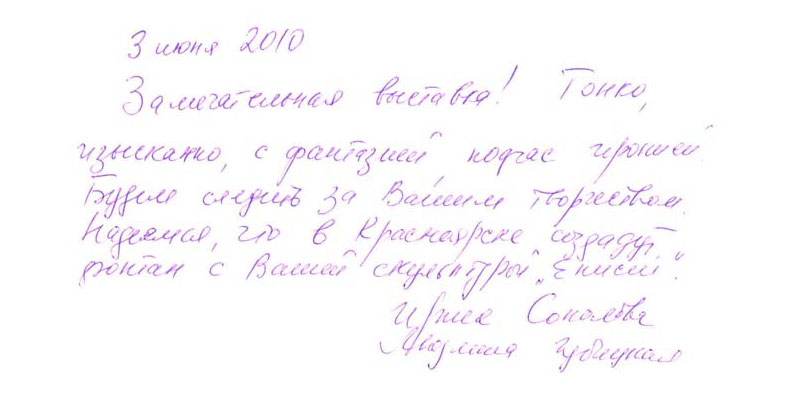 3 июня 2010
Замечательная выставка! Тонко,
изысканно, с фантазией, подчас иронией.
Будем следить за Вашим творчеством.
Надеемся, что в Красноярске создадут
фонтан с Вашей скульптурой „Енисей".
Соколова